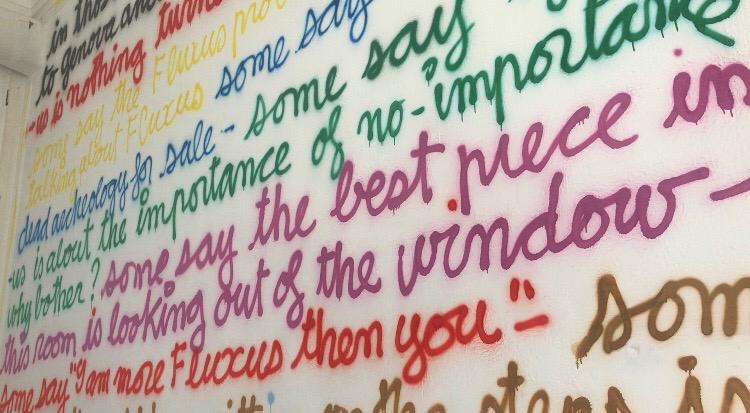 in this
to genova and
-us is nothing turn
some say the Fluxus pro
talking about Fluxus some say
dead archeology for sale - some say
-us is about the importance of no-importan
why bother? some say the best piece in
this room is looking out of the window -
some say "I am more Fluxus then you" - som
the steps is